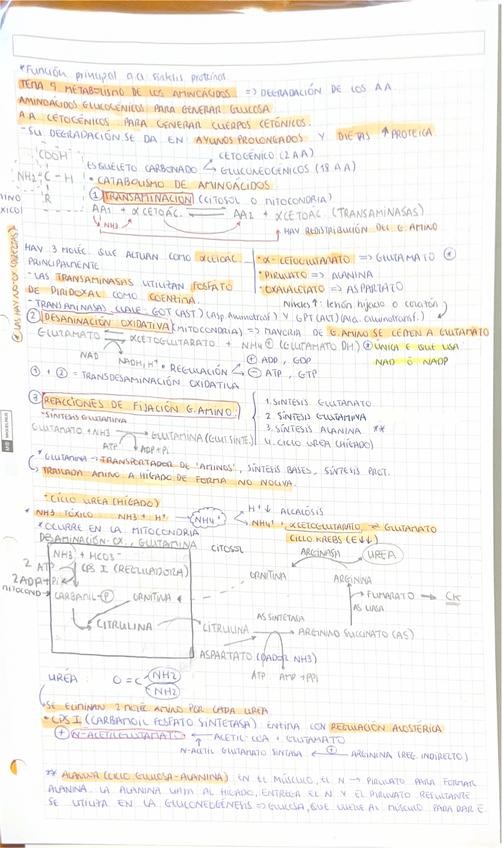 *Función principal a.a síntesis proteínas.
TEMA 9 METABOLISMO DE LOS AMINOÁCIDOS => DEGRADACIÓN DE LOS A.A.
AMINOÁCIDOS GLUCOGÉNICOS PARA GENERAR GLUCOSA
A.A. CETOGÉNICOS PARA GENERAR CUERPOS CETÓNICOS.
- SU DEGRADACIÓN SE DA EN AYUNOS PROLONGADOS Y DIETAS ↑ PROTEICA
COOH
NH2 - C - H
R
ESQUELETO CARBONADO
CETOGÉNICO (2 AA)
GLUCONEOGÉNICOS (18 AA)
• CATABOLISMO DE AMINOÁCIDOS
① TRANSAMINACIÓN (CITOSOL O MITOCONDRIA)
AA1 + αCETOÁC. AA2 + αCETOÁC (TRANSAMINASAS)
NH3
HAY REDISTRIBUCIÓN DEL G.AMINO
HAY 3 MOLÉC. QUE ACTÚAN COMO αCETOÁC
PRINCIPALMENTE
• α-CETOGLUTARATO => GLUTAMATO
• PIRUVATO => ALANINA
• OXALACETATO => ASPARTATO
- LAS TRANSAMINASAS UTILIZAN FOSFATO
DE PIRIDOXAL COMO COENZIMA.
Niveles ↑: lesión hígado o corazón
- TRANSAMINASAS CLAVE GOT (AST) (Asp aminotransf.) Y GPT (ALT) (Ala. aminotransf.)
② DESAMINACIÓN OXIDATIVA (MITOCONDRIA) => MAYORÍA DE G.AMINO SE CEDEN A GLUTAMATO
GLUTAMATO αCETOGLUTARATO + NH4 (GLUTAMATO DH.) ÚNICA E QUE USA
NAD Ó NADP
NAD NADH, H+
• REGULACIÓN
⊕ ADP, GDP
⊖ ATP, GTP
① + ② = TRANSDESAMINACIÓN OXIDATIVA
③ REACCIONES DE FIJACIÓN G.AMINO.
1. SINTESIS GLUTAMATO
2 SÍNTESIS GLUTAMINA
3. SÍNTESIS ALANINA **
4. CICLO UREA (HÍGADO)
*SÍNTESIS GLUTAMINA
GLUTAMATO + NH3 GLUTAMINA (GLUT. SINTE.)
ATP ADP+Pi
* GLUTAMINA → TRANSPORTADOR DE "AMINOS", SÍNTESIS BASES, SÍNTESIS PROT.
TRASLADA AMINO A HÍGADO DE FORMA NO NOCIVA.
* CICLO UREA (HÍGADO)
* NH3 TÓXICO NH3 + H+ → NH4+
H+ ↓ ALCALOSIS
NH4+ αCETOGLUTARATO → GLUTAMATO
CICLO KREBS (E↓↓)
* OCURRE EN LA MITOCONDRIA
DESAMINACIÓN OX., GLUTAMINA CITOSOL
NH3 + HCO3-
2 ATP
2ADP+Pi
CPS I (REGULADORA)
MITOCOND
CARBAMIL-P ORNITINA
CITRULINA
ORNITINA
ARGINASA
UREA
ARGININA
AS LIASA
FUMARATO → CK
CITRULINA
AS SINTETASA
ARGININO SUCCINATO (AS)
ASPARTATO (DADOR NH3)
ATP AMP+PPi
UREA: O=C NH2
NH2
SE ELIMINAN 2 MOLÉC AMINO POR CADA UREA
* CPS I (CARBAMOIL FOSFATO SINTETASA): ENZIMA CON REGULACIÓN ALOSTÉRICA
⊕ N-ACETILGLUTAMATO ← ACETIL-COA + GLUTAMATO
N-ACETIL GLUTAMATO SINTASA ← ⊕ ARGININA (REG. INDIRECTO)
** ALANINA (CICLO GLUCOSA-ALANINA) EN EL MÚSCULO, EL N → PIRUVATO PARA FORMAR
ALANINA. LA ALANINA VIAJA AL HÍGADO, ENTREGA EL N Y EL PIRUVATO RESULTANTE
SE UTILIZA EN LA GLUCONEOGÉNESIS => GLUCOSA, QUE VUELVE AL MÚSCULO PARA DAR E.